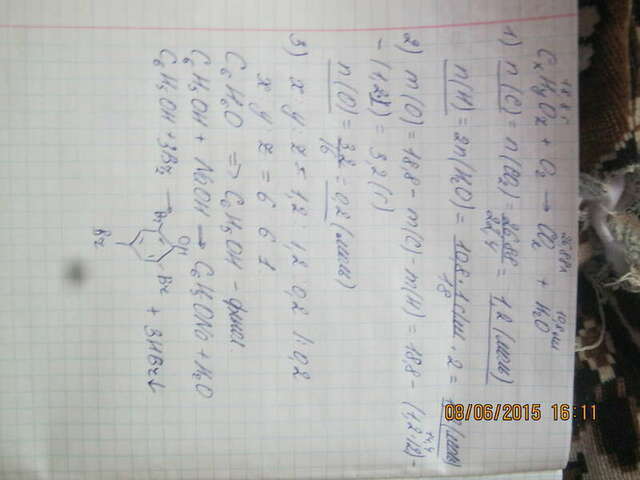 18,8г 26,88л 10,8мл
CxHyOz + O2 → CO2 + H2O
1) n(C) = n(CO2) = 26,88/22,4 = 1,2 (моль)
n(H) = 2n(H2O) = 10,8·1г/мл/18 · 2 = (моль)
2) m(O) = 18,8 - m(C) - m(H) = 18,8 - (1,2·12) -
- (1,2·1) = 3,2 (г)
n(O) = 3,2/16 = 0,2 (моль)
3) x : y : z = 1,2 : 1,2 : 0,2 | : 0,2
x : y : z = 6 : 6 : 1
C6H6O => C6H5OH - фенол
C6H5OH + NaOH → C6H5ONa + H2O
C6H5OH + 3Br2 → + 3HBr↓
OH
Br Br
Br
08/06/2015 16:11